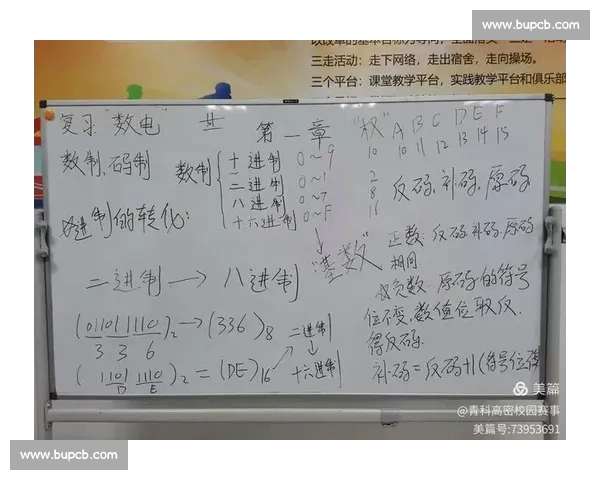 www.bupcb.com
三走活动：走下网络，走出宿舍，走向操场。
三个平台：课堂教学平台，实践教学平台和俱乐部
复习"数电" 第一章
数制、码制
数制
十进制 0~9
二进制 0~1
八进制 0~7
十六进制 0~F
"基数"
"权"
10
2
8
16
A B C D E F
10 11 12 13 14 15
进制的转化：
二进制 → 八进制
(011011110)₂ → (336)₈
3 3 6
(1101 1110)₂ = (DE)₁₆
D E
二进制
↓
十六进制
反码、补码、原码
正数：反码补码、原码
相同
负数：原码的符号
位不变，数值位取反，
得反码。
补码=反码+1(符号位
美篇
@青科高密校园赛事
美篇号:73953691
www.bupcb.com